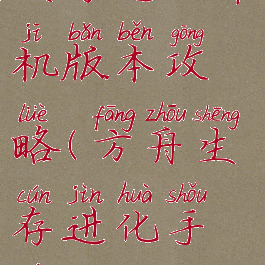 jī bǎn běn gōng
机版本攻
lüè fāng zhōu shēng
略(方舟生
cún jìn huà shǒu
存进化手